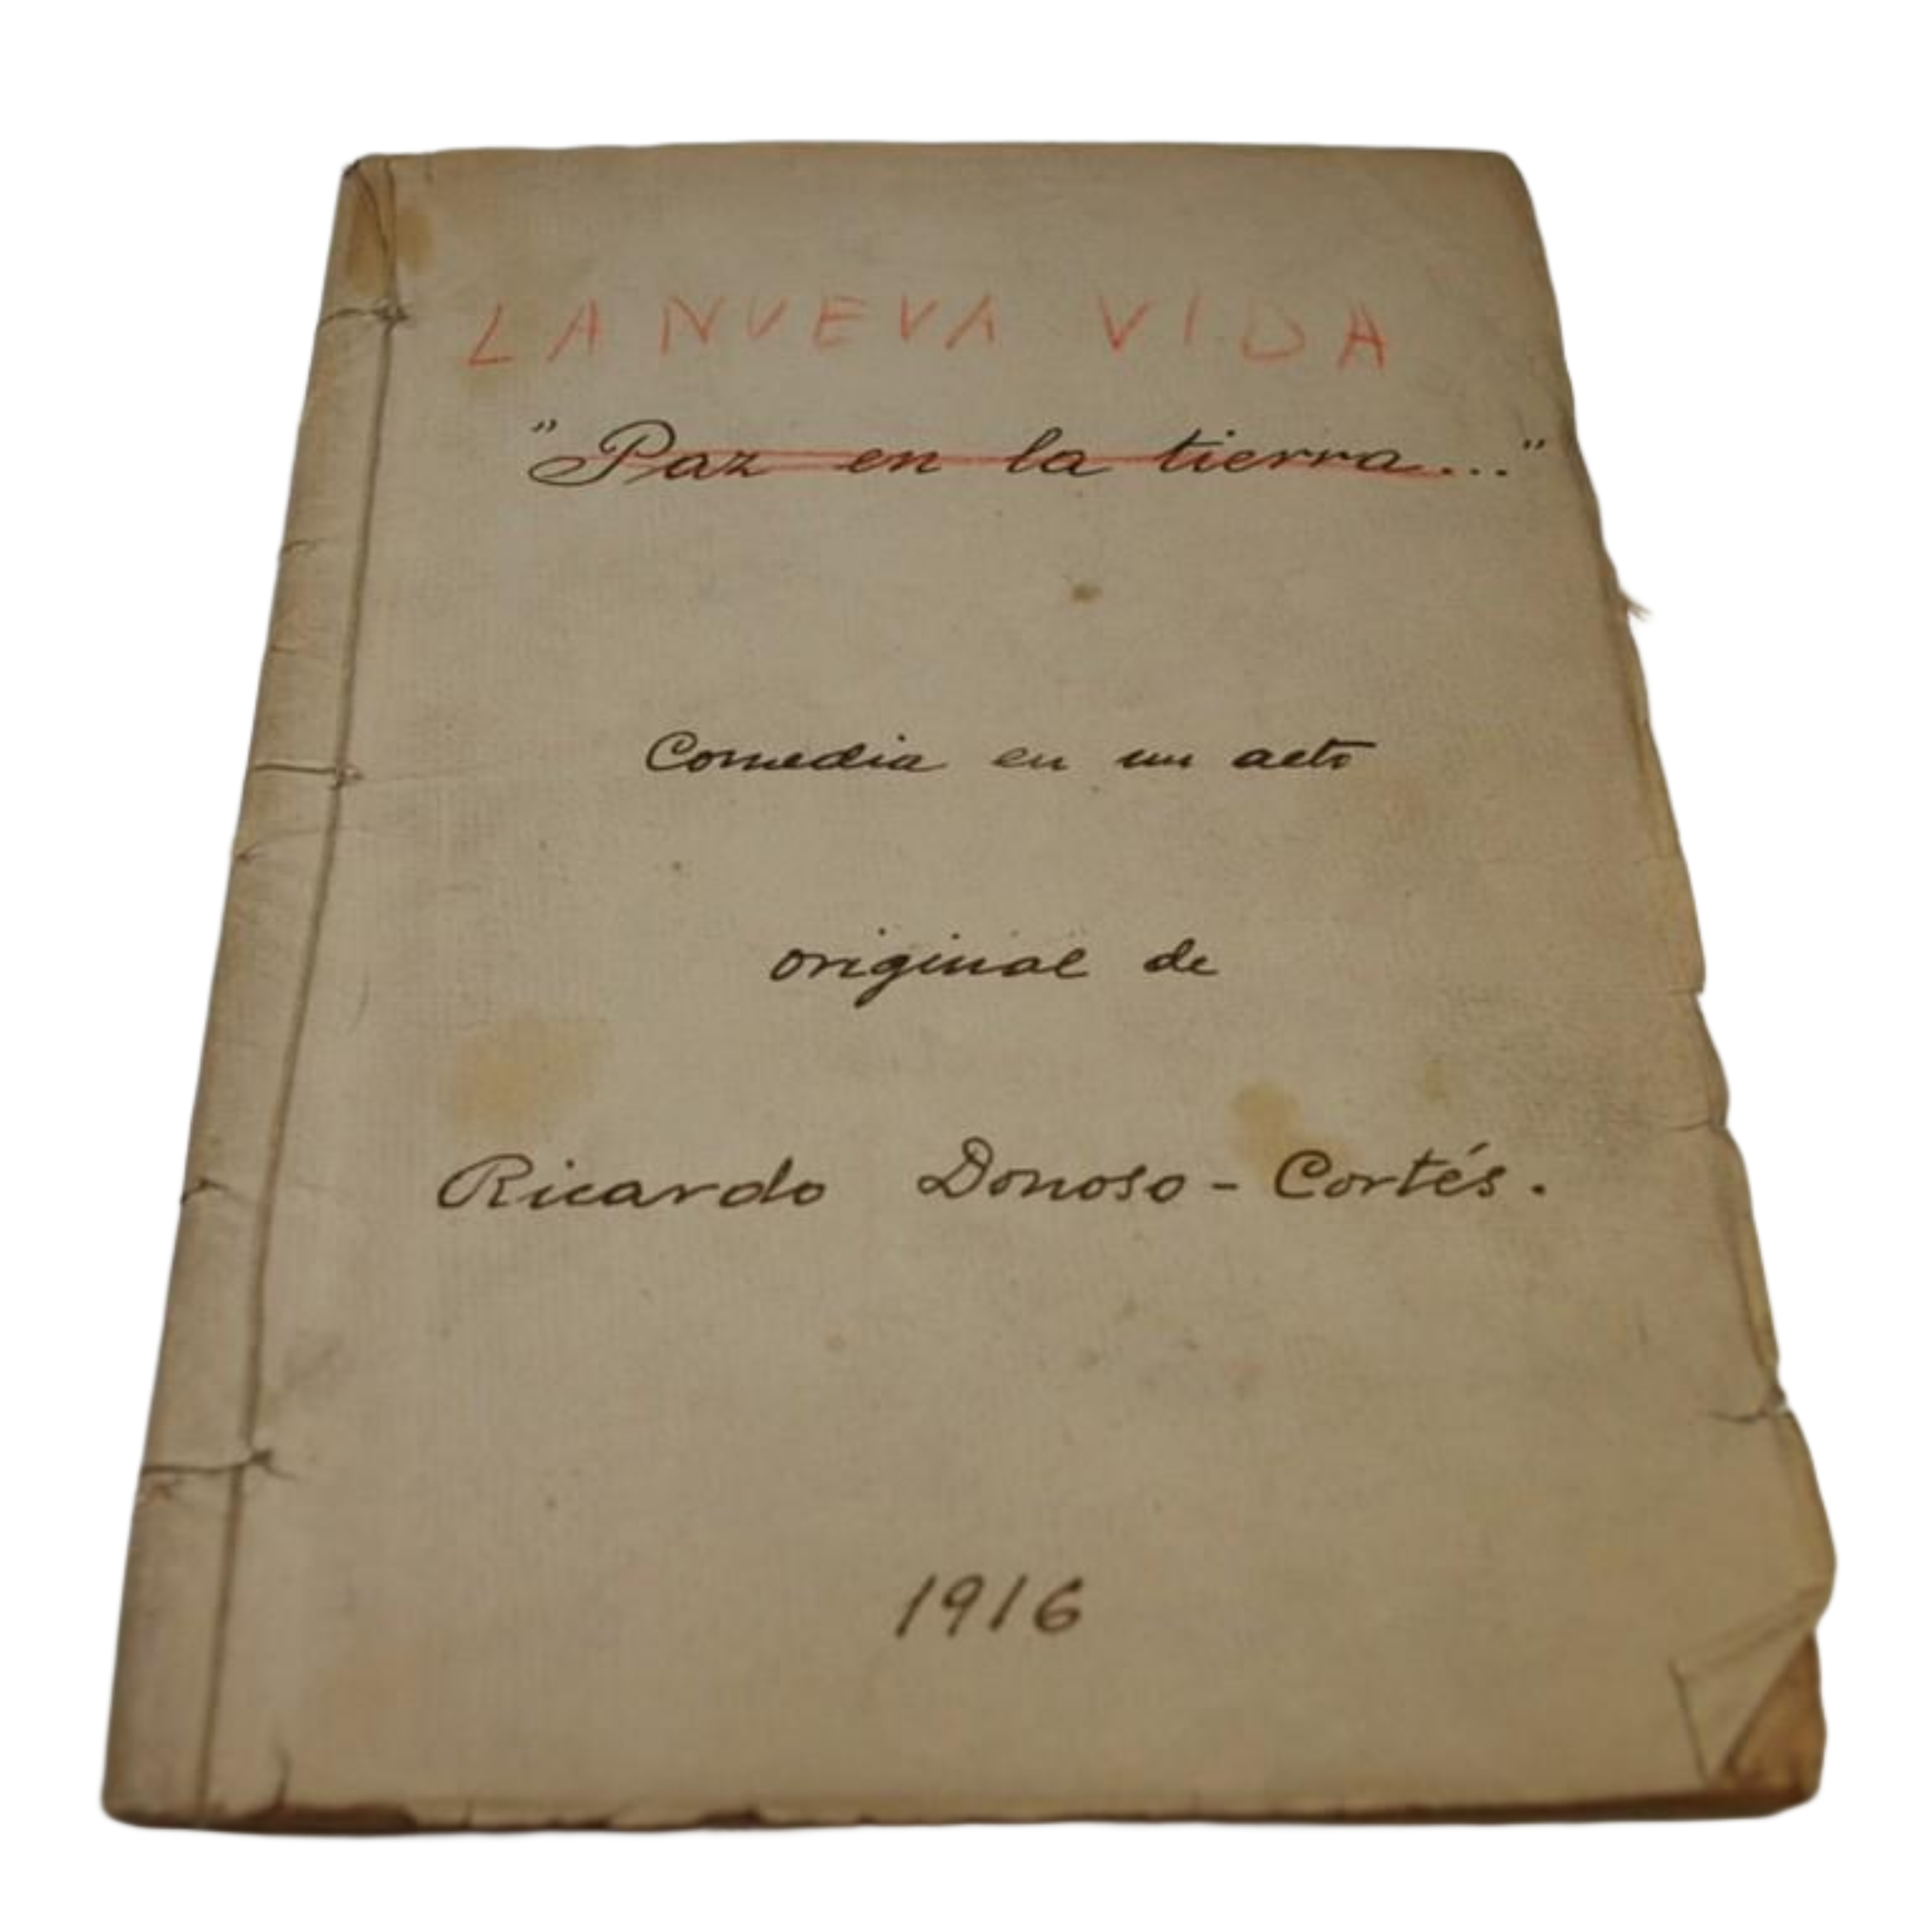 LA NUEVA VIDA
"Paz en la tierra..."
Comedia en un acto
original de
Ricardo Donoso-Cortés.
1916